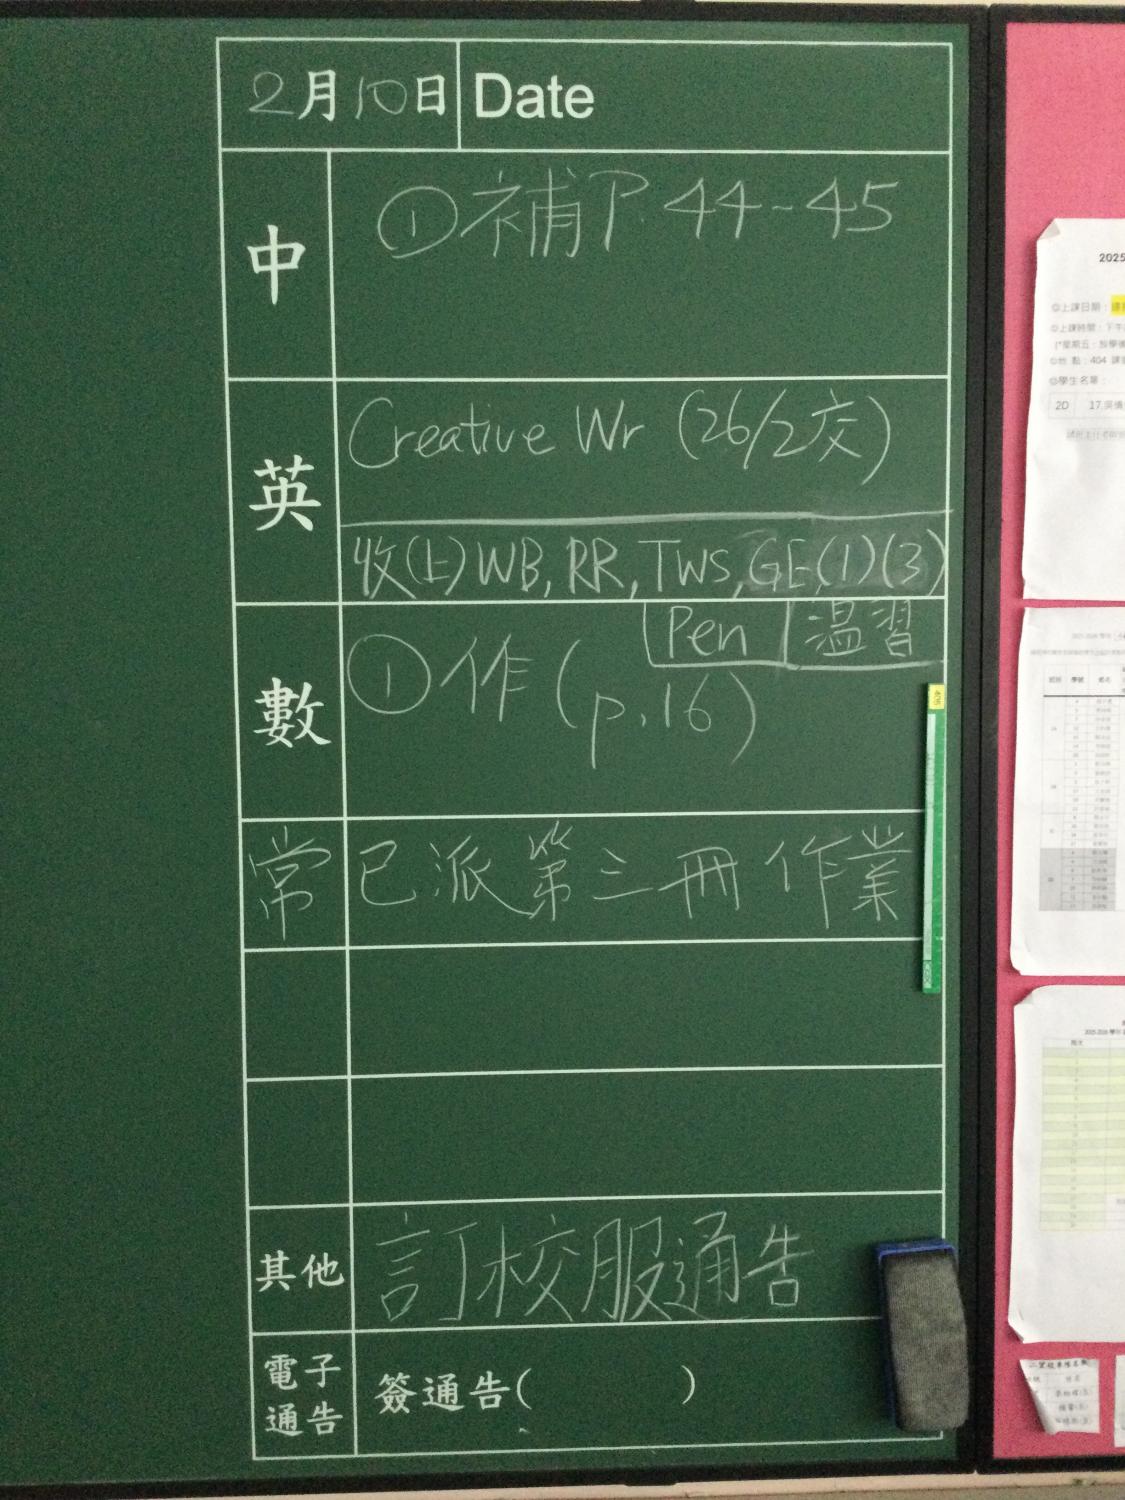 2月10日 Date
中 ①補P.44~45
英 Creative Wr (26/2交)
收(上)WB, RR, TWS, GE(1)(3)
Pen 温習
數 ①作(p.16)
常 已派第三冊作業
其他 訂校服通告
電子通告 簽通告( )
2025
◎上課日期：
◎上課時間：下午
(*星期五：放學後
◎地 點：404 課室
◎學生名單：
2D 17.吳